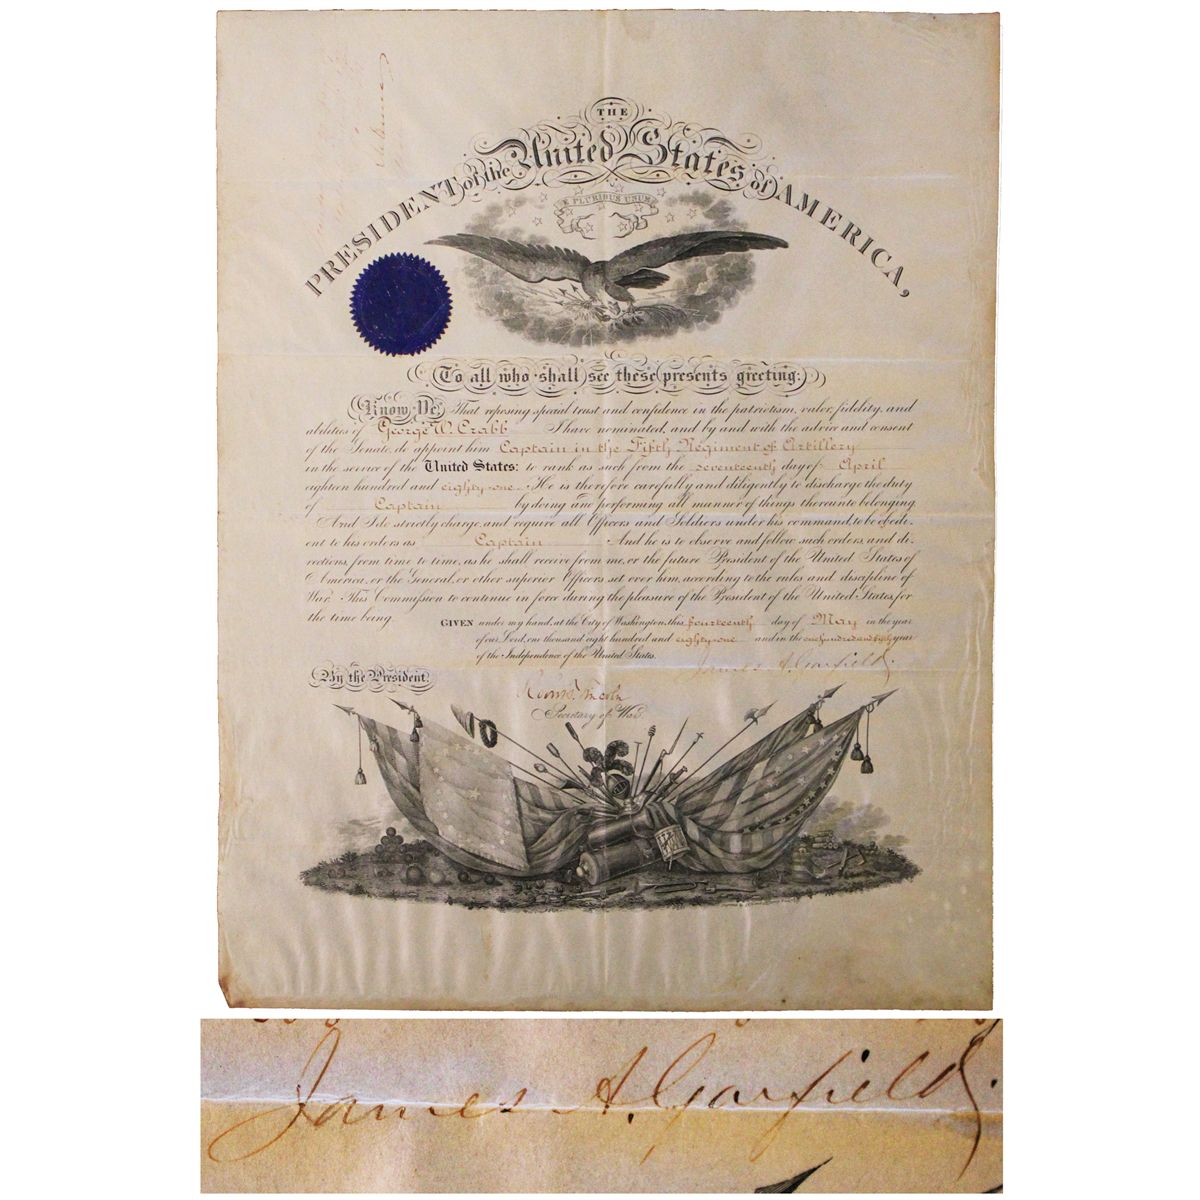 THE
PRESIDENT of the United States of AMERICA,
E PLURIBUS UNUM
To all who shall see these presents greeting:
Know Ye, That reposing special trust and confidence in the patriotism, valor, fidelity, and
abilities of George W. Crabb I have nominated, and by and with the advice and consent
of the Senate, do appoint him Captain in the Fifth Regiment of Artillery
in the service of the United States: to rank as such from the seventeenth day of April
eighteen hundred and eighty-one. He is therefore carefully and diligently to discharge the duty
of Captain by doing and performing all manner of things thereunto belonging.
And I do strictly charge, and require all Officers and Soldiers under his command, to be obedi-
ent to his orders as Captain And he is to observe and follow such orders, and di-
rections, from time to time, as he shall receive from me, or the future President of the United States of
America, or the General, or other superior Officers set over him, according to the rules and discipline of
War. This Commission to continue in force during the pleasure of the President of the United States, for
the time being.
GIVEN under my hand, at the City of Washington, this fourteenth day of May in the year
of our Lord, one thousand eight hundred and eighty-one and in the one hundred and fifth year
of the Independence of the United States.
James A. Garfield.
By the President
Robert T. Lincoln
Secretary of War.
James A. Garfield.